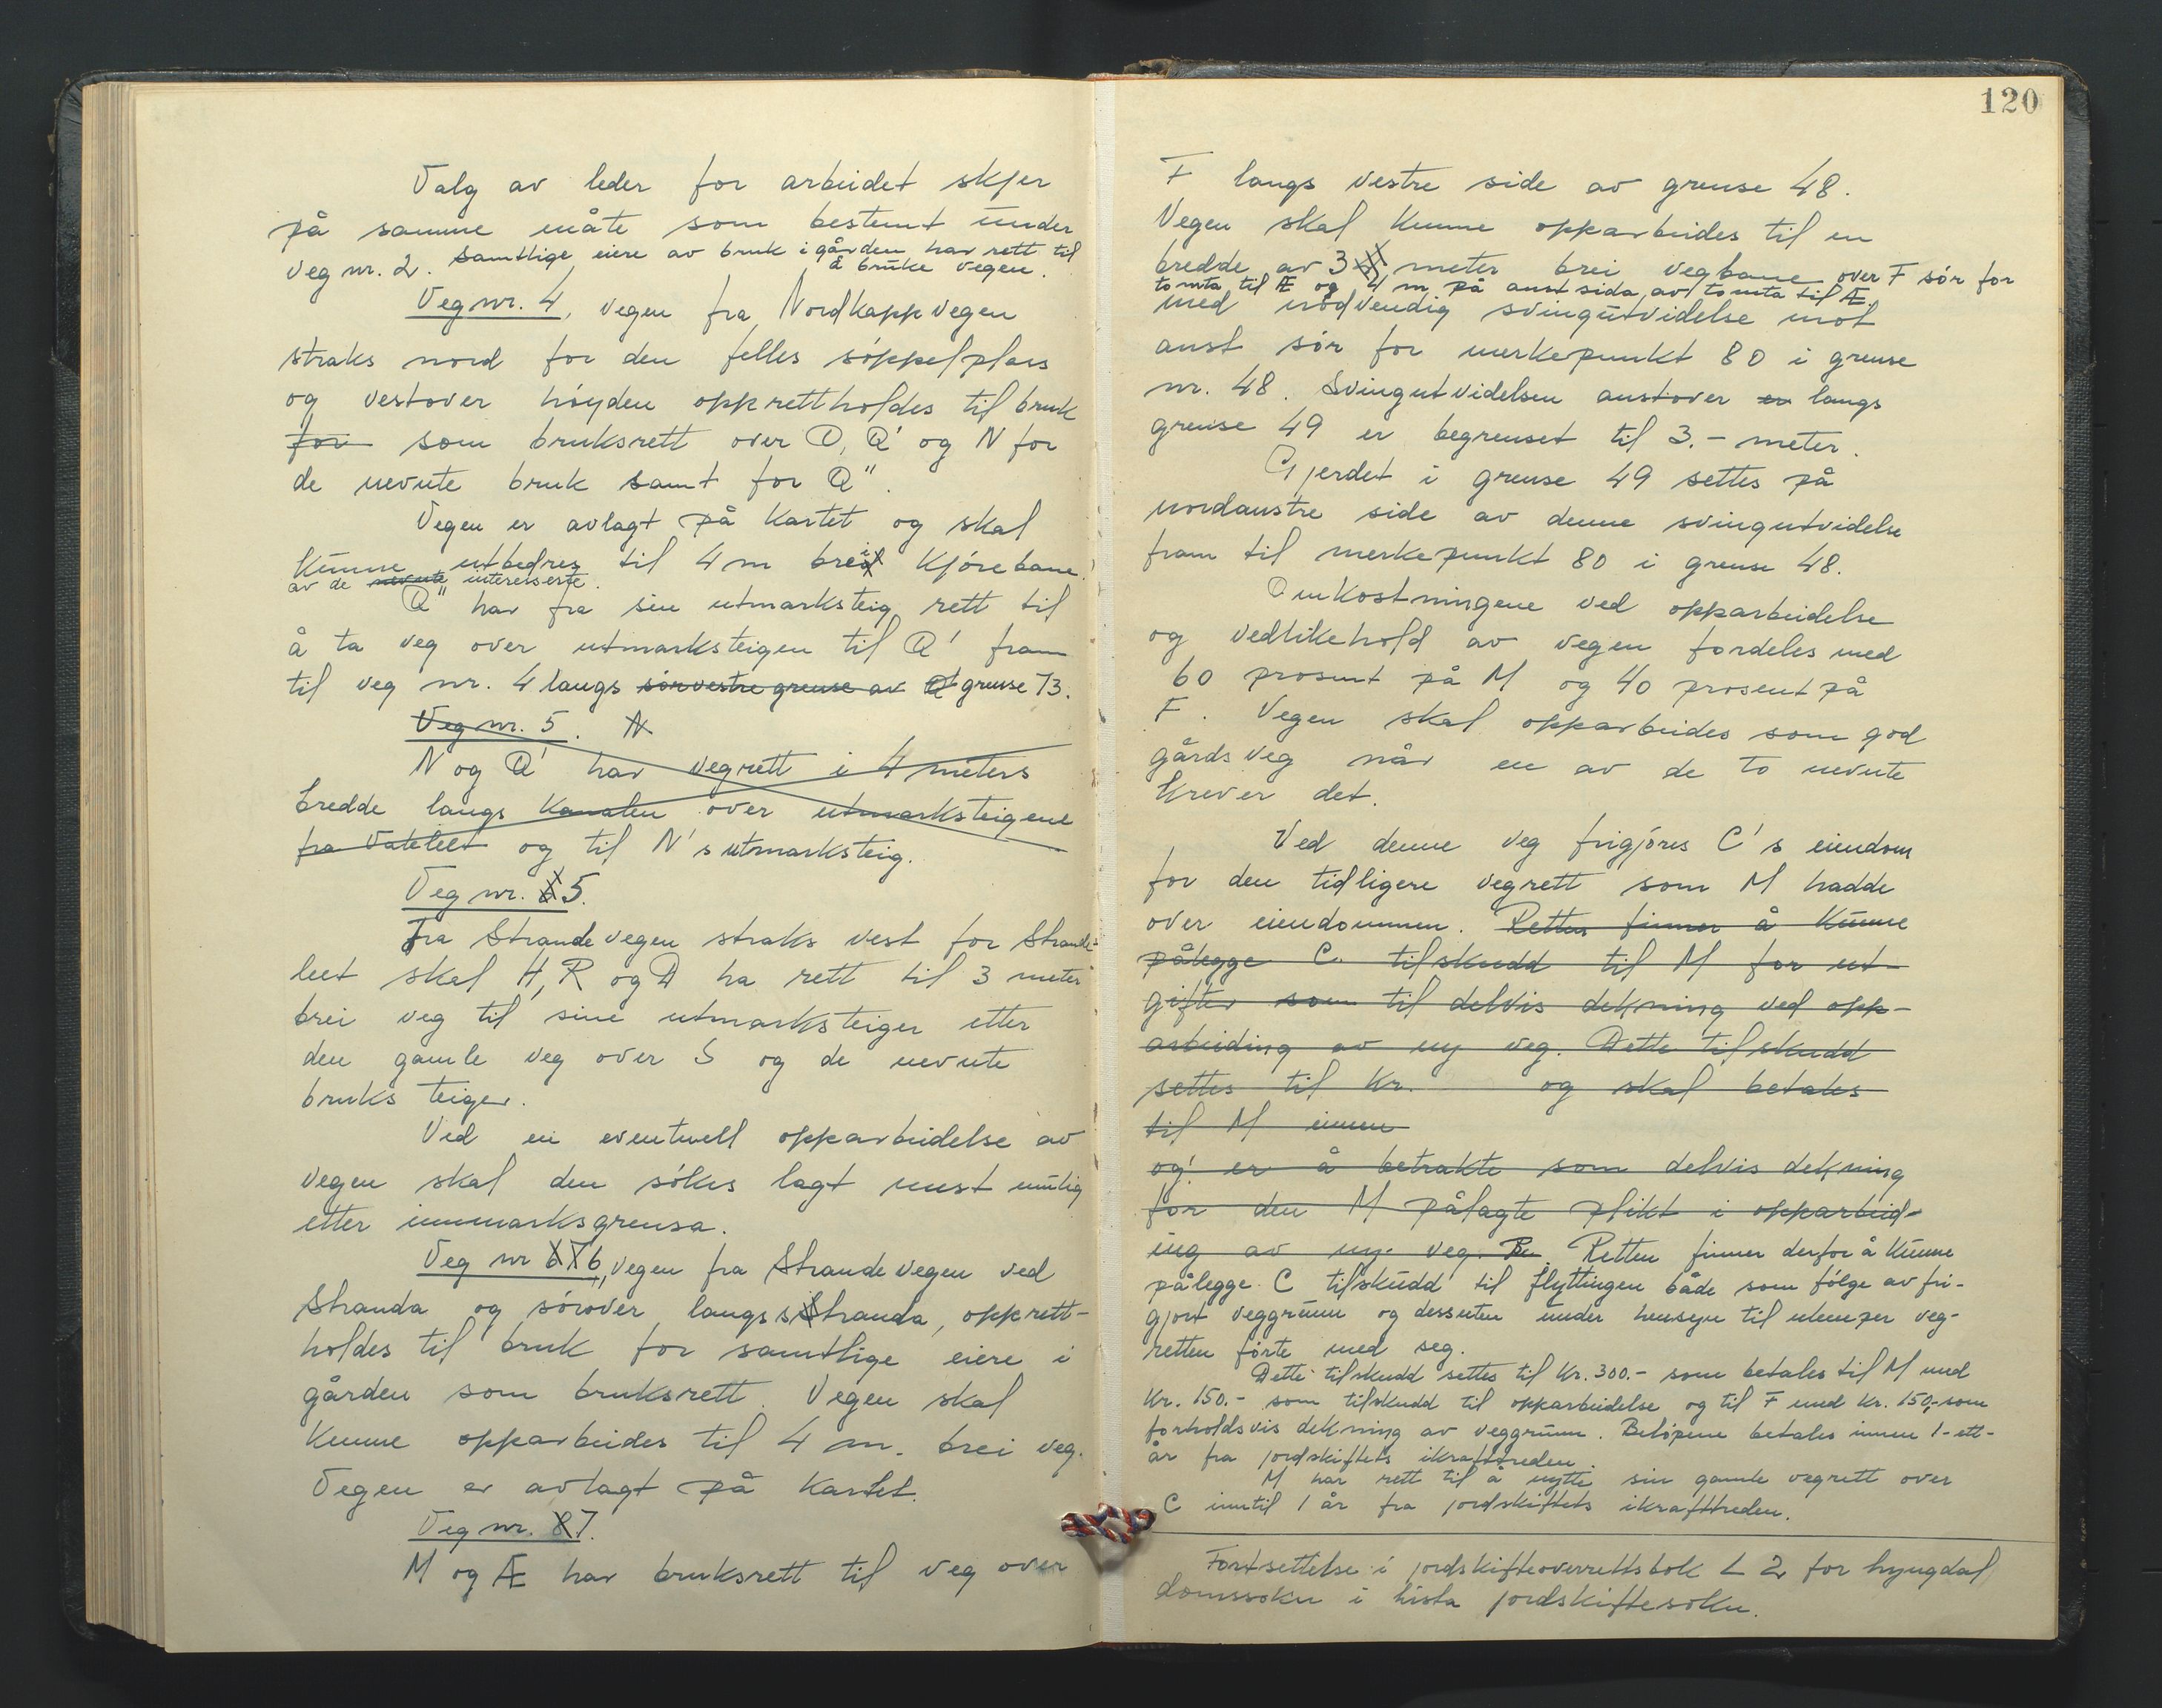 Valg av leder for arbeidet skjer
på samme måte som bestemt under
veg nr. 2. Samtlige eiere av bruk i gården har rett til
å bruke vegen.
Veg nr. 4, vegen fra Nordkappvegen
straks nord for den felles søppelplass
og vestover høyden opprettholdes til bruk
for som bruksrett over O, Q' og N for
de nevnte bruk samt for Q".
Vegen er avlagt på kartet og skal
kunne utbedres til 4 m brei kjørebane.
av de nevnte interesserte.
Q" har fra sin utmarksteig rett til
å ta veg over utmarksteigen til Q' fram
til veg nr. 4 langs sørvestre grense av Q' grense 73.
Veg nr. 5. N
N og Q' har vegrett i 4 meters
bredde langs kanalen over utmarksteigene
fra Vateleet og til N's utmarksteig.
Veg nr. 6 5.
Fra Strandevegen straks vest for Strande-
leet skal H, R og D ha rett til 3 meter
brei veg til sine utmarksteiger etter
den gamle veg over S og de nevnte
bruks teiger.
Ved en eventuell opparbeidelse av
vegen skal den søkes lagt mest mulig
etter innmarksgrensa.
Veg nr 6 7 6, vegen fra Strandevegen ved
Stranda og sørover langs stranda, opprett-
holdes til bruk for samtlige eiere i
gården som bruksrett. Vegen skal
kunne opparbeides til 4 m. brei veg.
Vegen er avlagt på kartet.
Veg nr. 8 7.
M og Æ har bruksrett til veg over
120
F langs vestre side av grense 48.
Vegen skal kunne opparbeides til en
bredde av 3 meter brei vegbane over F sør for
tomta til Æ og 4 m på aust sida av tomta til Æ.
med nødvendig svingutvidelse mot
aust sør for merkepunkt 80 i grense
nr. 48. Svingutvidelsen austover er langs
grense 49 er begrenset til 3.- meter.
Gjerdet i grense 49 settes på
nordaustre side av denne svingutvidelse
fram til merkepunkt 80 i grense 48.
Omkostningene ved opparbeidelse
og vedlikehold av vegen fordeles med
60 prosent på M og 40 prosent på
F. Vegen skal opparbeides som god
gårdsveg når en av de to nevnte
krever det.
Ved denne veg frigjøres C's eiendom
for den tidligere vegrett som M hadde
over eiendommen. Retten finner å kunne
pålegge C. tilskudd til M for ut-
gifter som til delvis dekning ved opp-
arbeiding av ny veg. Dette tilskudd
settes til kr. og skal betales
til M innen
og er å betrakte som delvis dekning
for den M pålagte plikt i opparbeid-
ing av ny veg. Re. Retten finner derfor å kunne
pålegge C tilskudd til flyttingen både som følge av fri-
gjort veggrunn og dessuten under hensyn til ulemper veg-
retten førte med seg.
Dette tilskudd settes til kr. 300.- som betales til M med
kr. 150.- som tilskudd til opparbeidelse og til F med kr. 150,- som
forholdsvis dekning av veggrunn. Beløpene betales innen 1-ett-
år fra jordskiftets ikrafttreden.
M har rett til å nytte sin gamle vegrett over
C inntil 1 år fra jordskiftets ikrafttreden.
Fortsettelse i jordskifteoverrettsbok L 2 for Lyngdal
domssokn i Lista jordskiftesokn.